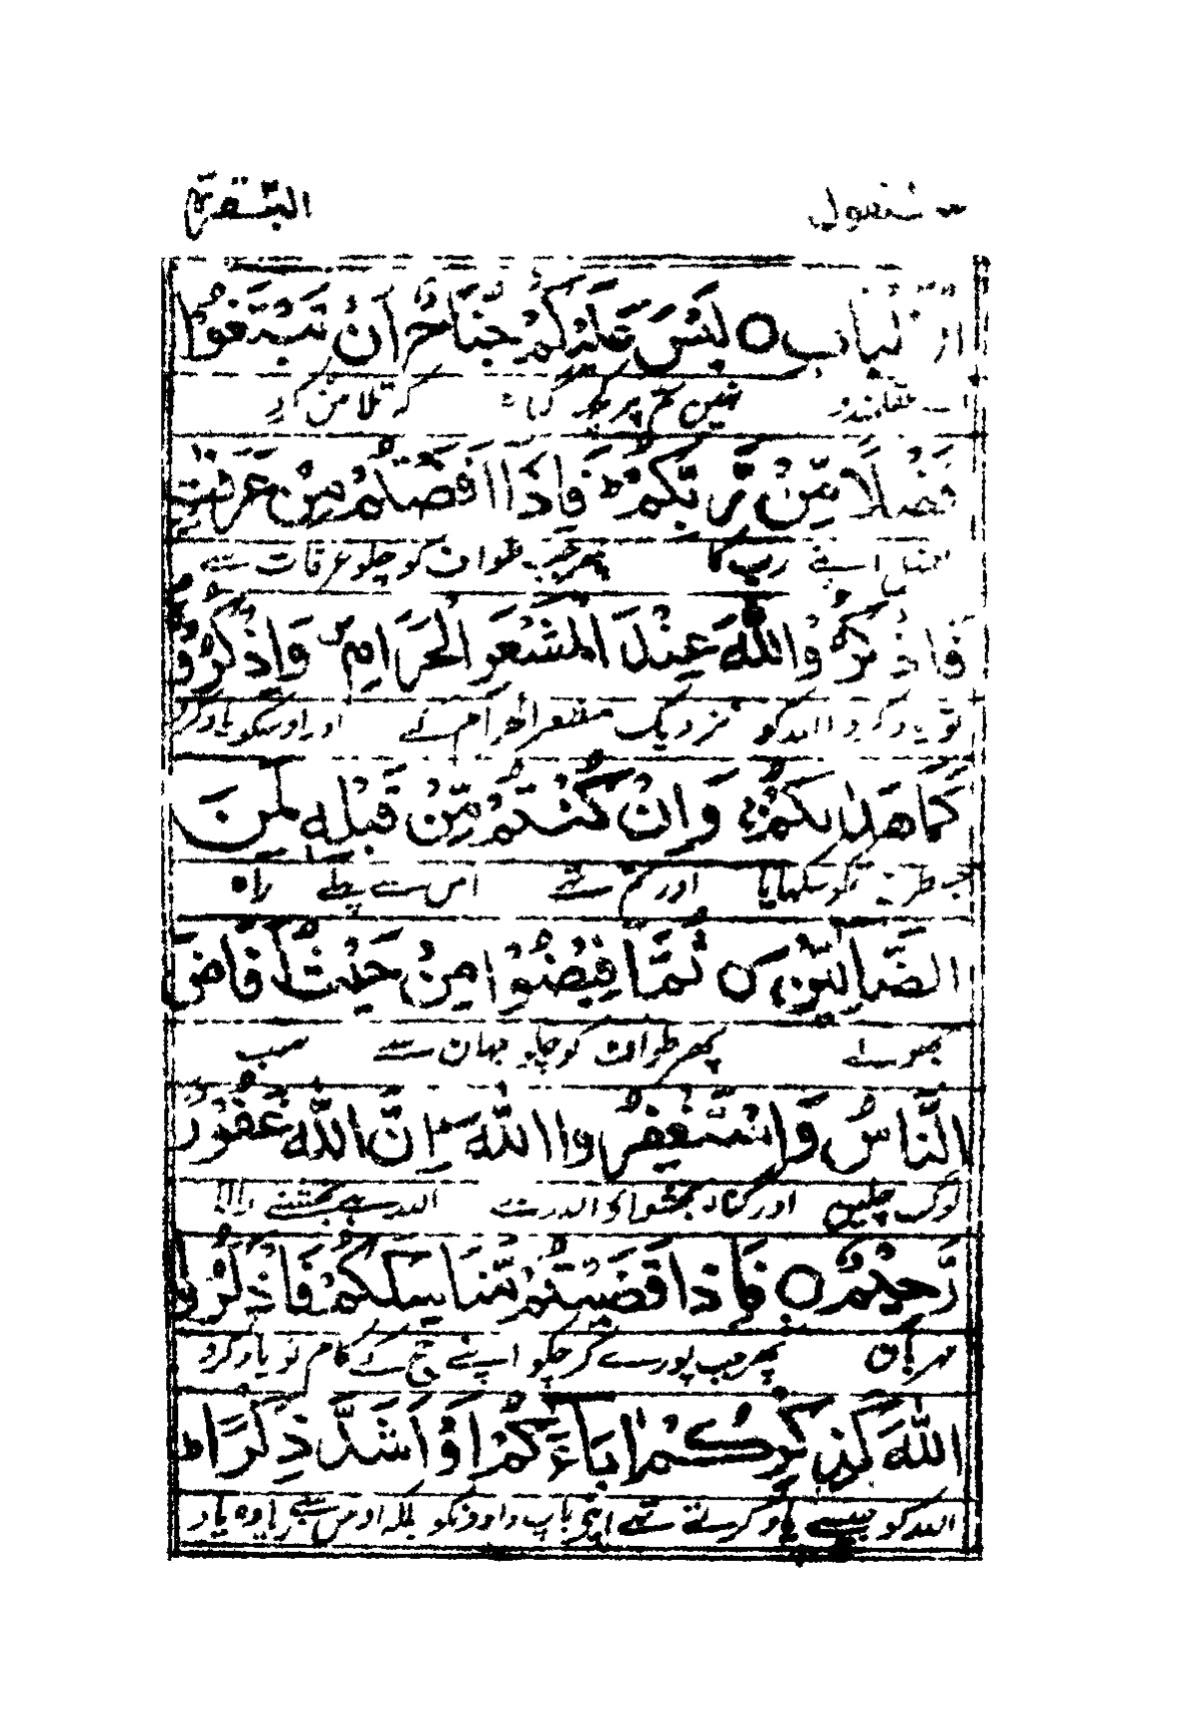 سَيَقُولُ ٢ البقرة
الْأَلْبَابِ ○ لَيْسَ عَلَيْكُمْ جُنَاحٌ أَنْ تَبْتَغُوْا
اے عقلمندو نہیں تم پر کچھ گناہ کہ تلاش کرو
فَضْلًا مِّنْ رَّبِّكُمْ ط فَاِذَا اَفَضْتُمْ مِنْ عَرَفٰتٍ
فضل اپنے رب کا پھر جب طواف کو چلو عرفات سے
فَاذْكُرُوا اللهَ عِنْدَ الْمَشْعَرِ الْحَرَامِ ص وَاذْكُرُوْ
تو یاد کرو اللہ کو نزدیک مشعر الحرام کے اور اوسکو یاد کرو
كَمَا هَدٰىكُمْ ج وَاِنْ كُنْتُمْ مِّنْ قَبْلِهٖ لَمِنَ
جس طرح تمکو سکھایا اور تم تھے اس سے پہلے راہ
الضَّالِّيْنَ ○ ثُمَّ اَفِيْضُوْا مِنْ حَيْثُ اَفَاضَ
بھولے پھر طواف کو چلو جہان سے سب
النَّاسُ وَاسْتَغْفِرُوا اللهَ ط اِنَّ اللهَ غَفُوْرٌ
لوگ چلیں اور گناہ بخشواؤ اللہ سے اللہ ہے بخشنے والا
رَّحِيْمٌ ○ فَاِذَا قَضَيْتُمْ مَّنَاسِكَكُمْ فَاذْكُرُوا
مہربان پھر جب پورے کر چکو اپنے حج کے کام تو یاد کرو
اللهَ كَذِكْرِكُمْ اٰبَآءَكُمْ اَوْ اَشَدَّ ذِكْرًا ط
اللہ کو جیسے یاد کرتے تھے اپنی باپ دادونکو بلکہ اوس سے زیادہ یاد